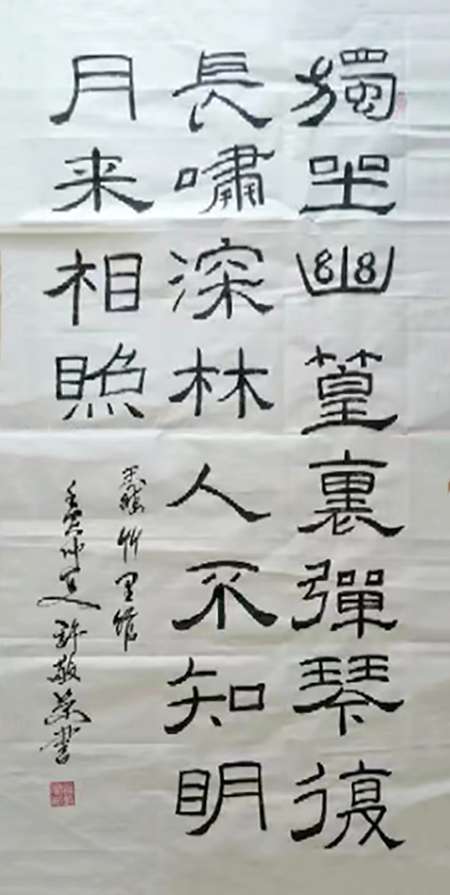 獨坐幽篁裏彈琴復
長嘯深林人不知明
月来相照
王維竹里館
壬寅仲夏許敬書